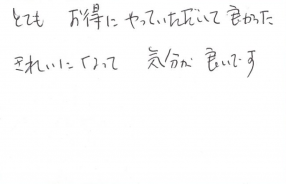 とても お得に やっていただいて 良かった
きれいになって 気分が 良いです